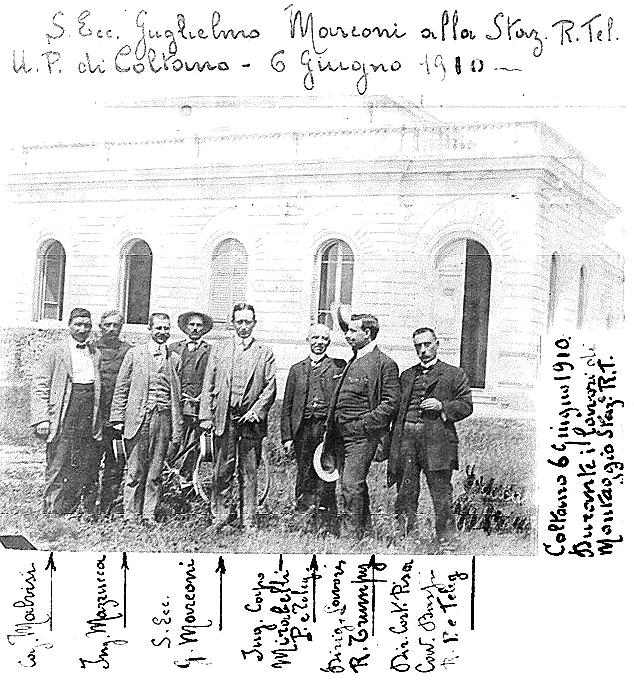 S. Ecc. Guglielmo Marconi alla Staz. R. Tel.
U.P. di Coltano - 6 Giugno 1910
Coltano 6 Giugno 1910.
Durante i lavori di
Montaggio Staz. R.T.
Ing. Mazzucca
S. Ecc.
G. Marconi
Ing. Capo
Mirabelli
P. e Teleg
Dirig. Lavori
R. Trump
Dir. Cost. Pisa
Cav.
P. e Teleg